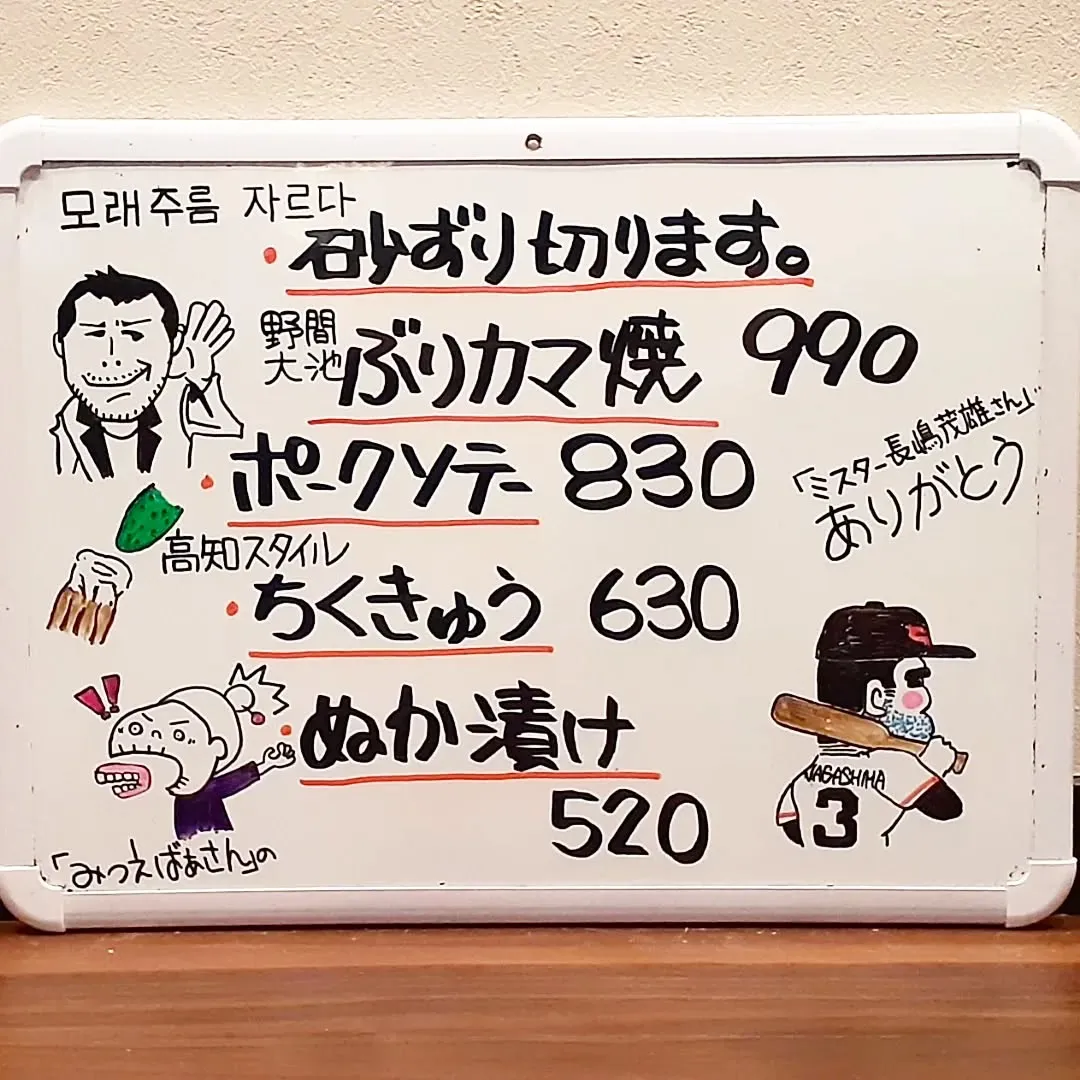 모래주름 자르다
・砂ずり切ります。
野間
大池
ぶりカマ焼 990
・ポークソテー 830
「ミスター長嶋茂雄さん」
ありがとう
高知スタイル
・ちくきゅう 630
・ぬか漬け
520
「みつえばぁさん」の
NAGASHIMA
3